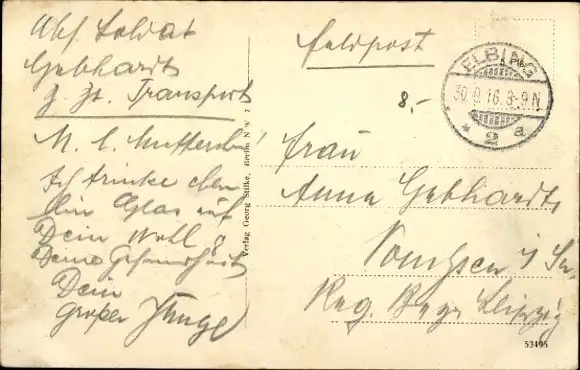 Abs. Soldat
Gebhardt
z. Zt. Transport
M. l. Mutterchen!
Ich trinke eben
ein Glas auf
Dein Wohl &
Deine Gesundheit
Dein
großer Junge
Verlag Georg Stilke, Berlin N W 7
Feldpost
8,-
ELBING
30.9.16.8-9.N
* 2 a
Frau
Anna Gebhardt
i/Sa.
Reg. Bez. Leipzig
53495